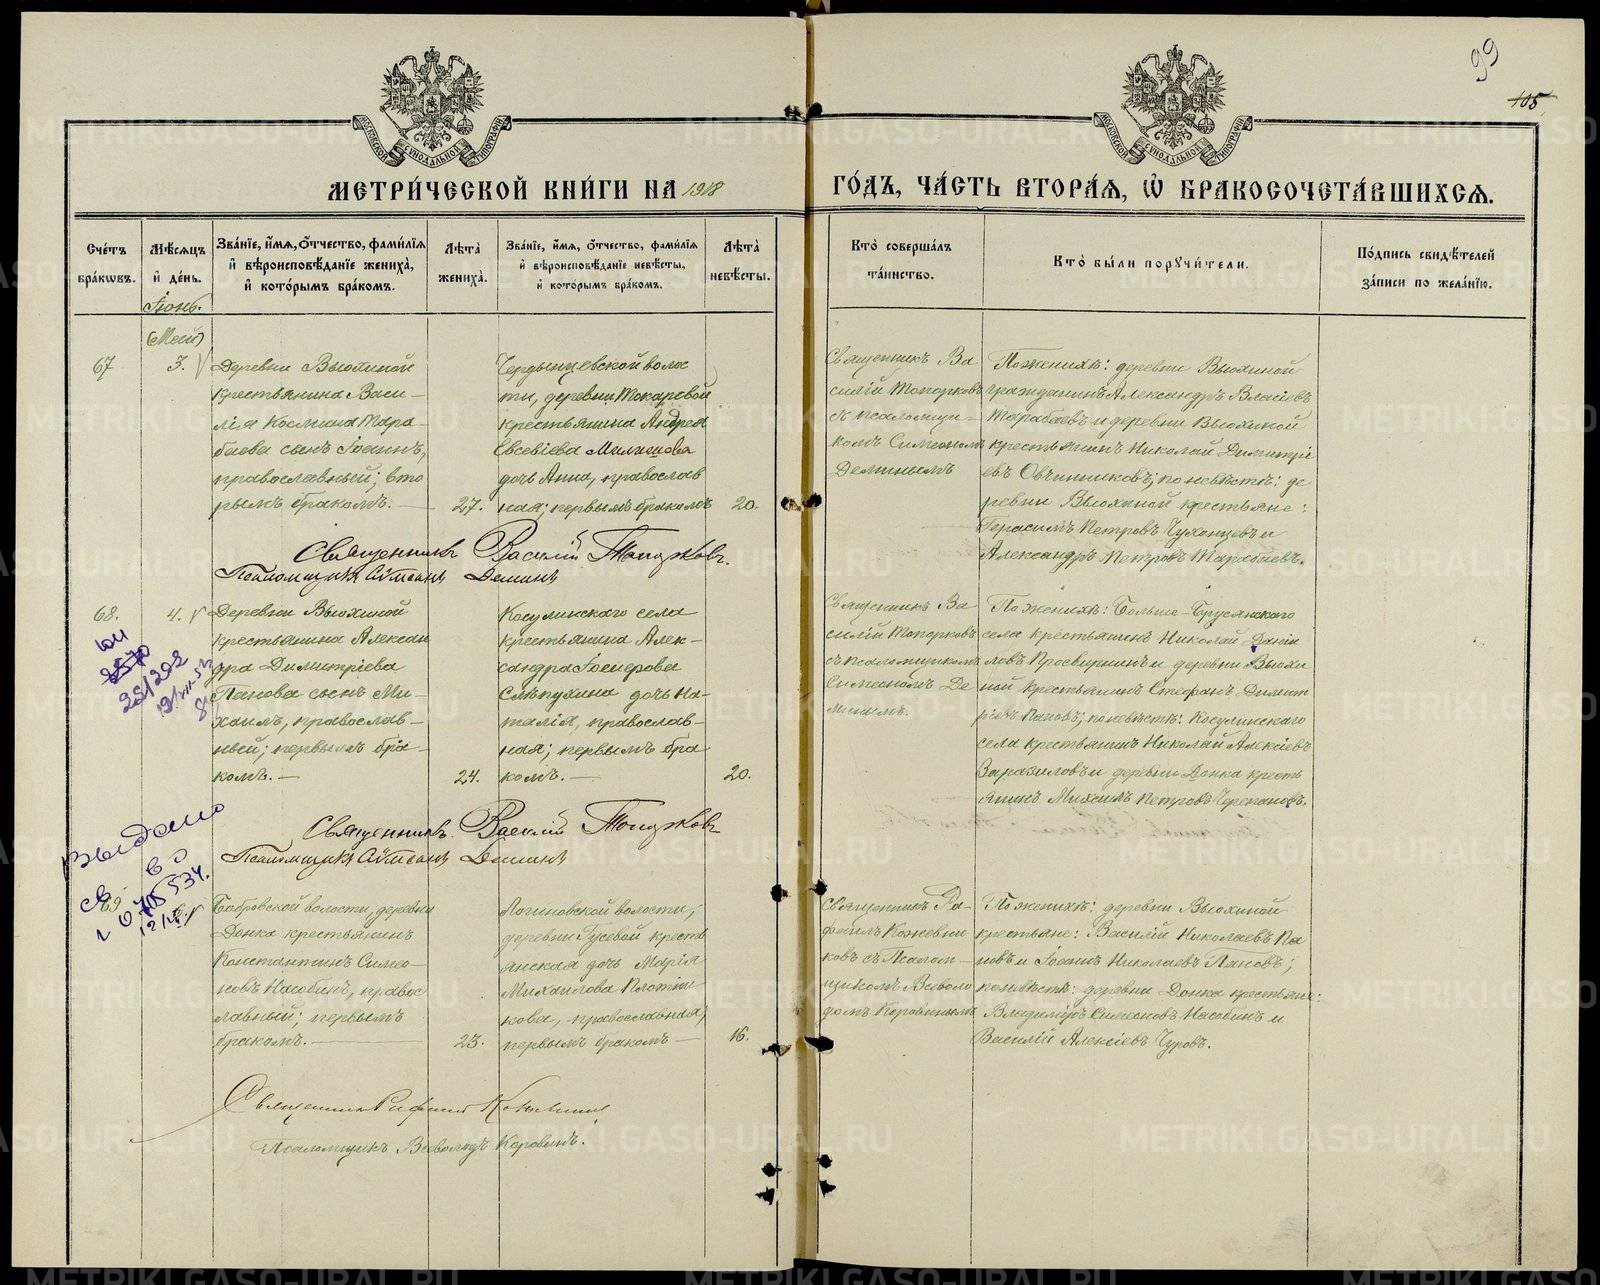 99
105
МОСКОВСКОЙ СѴНОДАЛЬНОЙ ТИПОГРАФІИ
МОСКОВСКОЙ СѴНОДАЛЬНОЙ ТИПОГРАФІИ
МЕТРИ́ЧЕСКОЙ КНИ́ГИ НА 1918
ГО́ДЪ, ЧА́СТЬ ВТОРА́Я, Ѡ҆ БРАКОСОЧЕТА́ВШИХСЯ.
Сче́тъ бра́кѡвъ.
Мѣ́сяцъ и҆ де́нь.
Зва́нїе, и҆́мя, ѻ҆́тчество, фами́лїя и҆ вѣроисповѣ́данїе жениха̀, и҆ кото́рымъ бра́комъ.
Лѣ́та̀ жениха̀.
Зва́нїе, и҆́мя, ѻ҆́тчество, фами́лїя и҆ вѣроисповѣ́данїе невѣ́сты, и҆ кото́рымъ бра́комъ.
Лѣ́та̀ невѣ́сты.
Кто̀ соверша́лъ та́инство.
Кто̀ бы́ли порꙋчи́тели.
По́дпись свидѣ́телей за́писи по жела́нїю.
Іюнь.
(Май)
67
3.
Деревни Вьюхиной
крестьянина Васи-
лія Космина Тара-
баева сынъ Іоаннъ,
православный; вто
рымъ бракомъ. —
27.
волос
ти, деревни Токаревой
крестьянина Андрея
Евсевіева Милишова
дочь Анна, православ
ная; первымъ бракомъ
20.
Священникъ Ва
силій Топорковъ
съ псаломщи-
комъ Симеономъ
Деминымъ
По женихѣ: деревни Вьюхиной
гражданинъ Александръ Власіевъ
Тарабаевъ и деревни Вьюхиной
крестьянинъ Николай Димитрі
евъ Овчинниковъ; по невѣстѣ: де
ревни Вьюхиной крестьяне:
Герасимъ Петровъ Чуханцевъ и
Александръ Петровъ Тарабаевъ.
Священникъ Василій Топорковъ.
Псаломщикъ Сѵмеонъ Деминъ
68.
4.
Деревни Вьюхиной
крестьянина Алексан
дра Димитріева
Панова сынъ Ми-
хаилъ, православ-
ный; первымъ бра-
комъ. —
24.
Косулинскаго села
крестьянина Алек-
сандра
Слѣпухина дочь На-
талія, православ-
ная; первымъ бра
комъ. —
20.
Священникъ Ва
силій Топорковъ
съ псаломщикомъ
Симеономъ Де
минымъ.
По женихѣ: Больше-Брусянскаго
села крестьянинъ Николай Даніи
ловъ Просвирнинъ и деревни Вьюхи
ной крестьянинъ Стефанъ Димит
ріевъ Пановъ; по невѣстѣ: Косулинскаго
села крестьянинъ Николай Алексіевъ
и деревни Донка кресть
янинъ Михаилъ Петровъ Черепановъ.
25/292
Священникъ Василій Топорковъ
Псаломщикъ Сѵмеонъ Деминъ
Выдано
св во
69
Бобровской волости, деревни
Донка крестьянинъ
Константинъ Симео-
новъ Насобинъ, правос
лавный; первымъ
бракомъ. —
23.
Логиновской волости,
деревни Гусевой кресть
янская дочь Марія
Михаилова Плотни
кова, православная;
первымъ бракомъ —
16.
Священникъ Ра-
фаилъ Кожевни
ковъ съ Псалом-
щикомъ Всеволо
домъ Коровинымъ
По женихѣ: деревни Вьюхиной
крестьяне: Василій Николаевъ Па
новъ и Іоаннъ Николаевъ Пановъ;
по невѣстѣ: деревни Донка крестьяне:
Владиміръ Симеоновъ Насобинъ и
Василій Алексіевъ Чуровъ.
Священникъ Рафаилъ Кожевниковъ
Псаломщикъ Всеволодъ Коровинъ.
METRIKI.GASO-URAL.RU